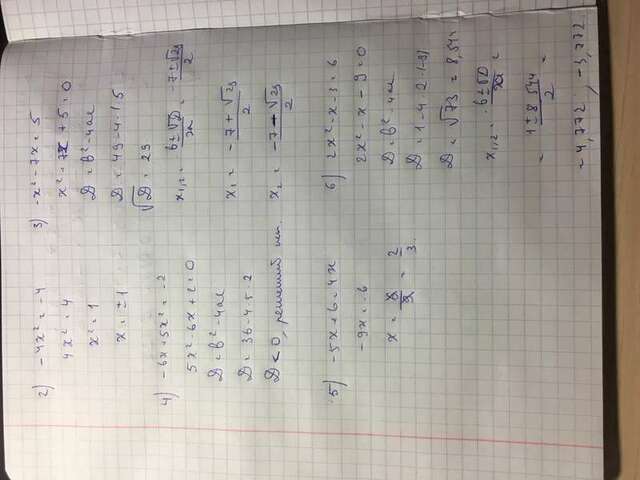 2) -4x² = -4
4x² = 4
x² = 1
x = ±1
3) -x² - 7x = 5
x² + 7x + 5 = 0
D = b² - 4ac
D = 49 - 4 · 1 · 5
√D = 29
x₁,₂ = b ± √D / 2a = -7 ± √29 / 2
x₁ = -7 + √29 / 2
x₂ = -7 - √29 / 2
4) -6x + 5x² = -2
5x² - 6x + 2 = 0
D = b² - 4ac
D = 36 - 4 · 5 · 2
D < 0, решений нет.
5) -5x + 6 = 4x
-9x = -6
x = 6 / 9 = 2 / 3.
6) 2x² - x - 3 = 6
2x² - x - 9 = 0
D = b² - 4ac
D = 1 - 4 · 2 · (-9)
D = √73 = 8,544
x₁,₂ = -b ± √D / 2a =
= 1 ± 8,544 / 2 =
= 4,772, -3,772